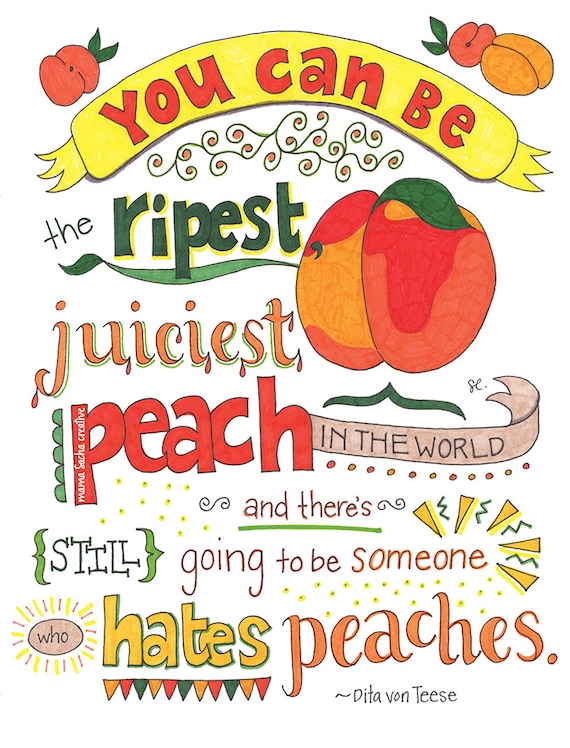 YOU CAN BE
the ripest
juiciest
se.
peach IN THE WORLD
mama sacha creative
and there's
{STILL} going to be someone
who hates peaches.
~Dita von Teese